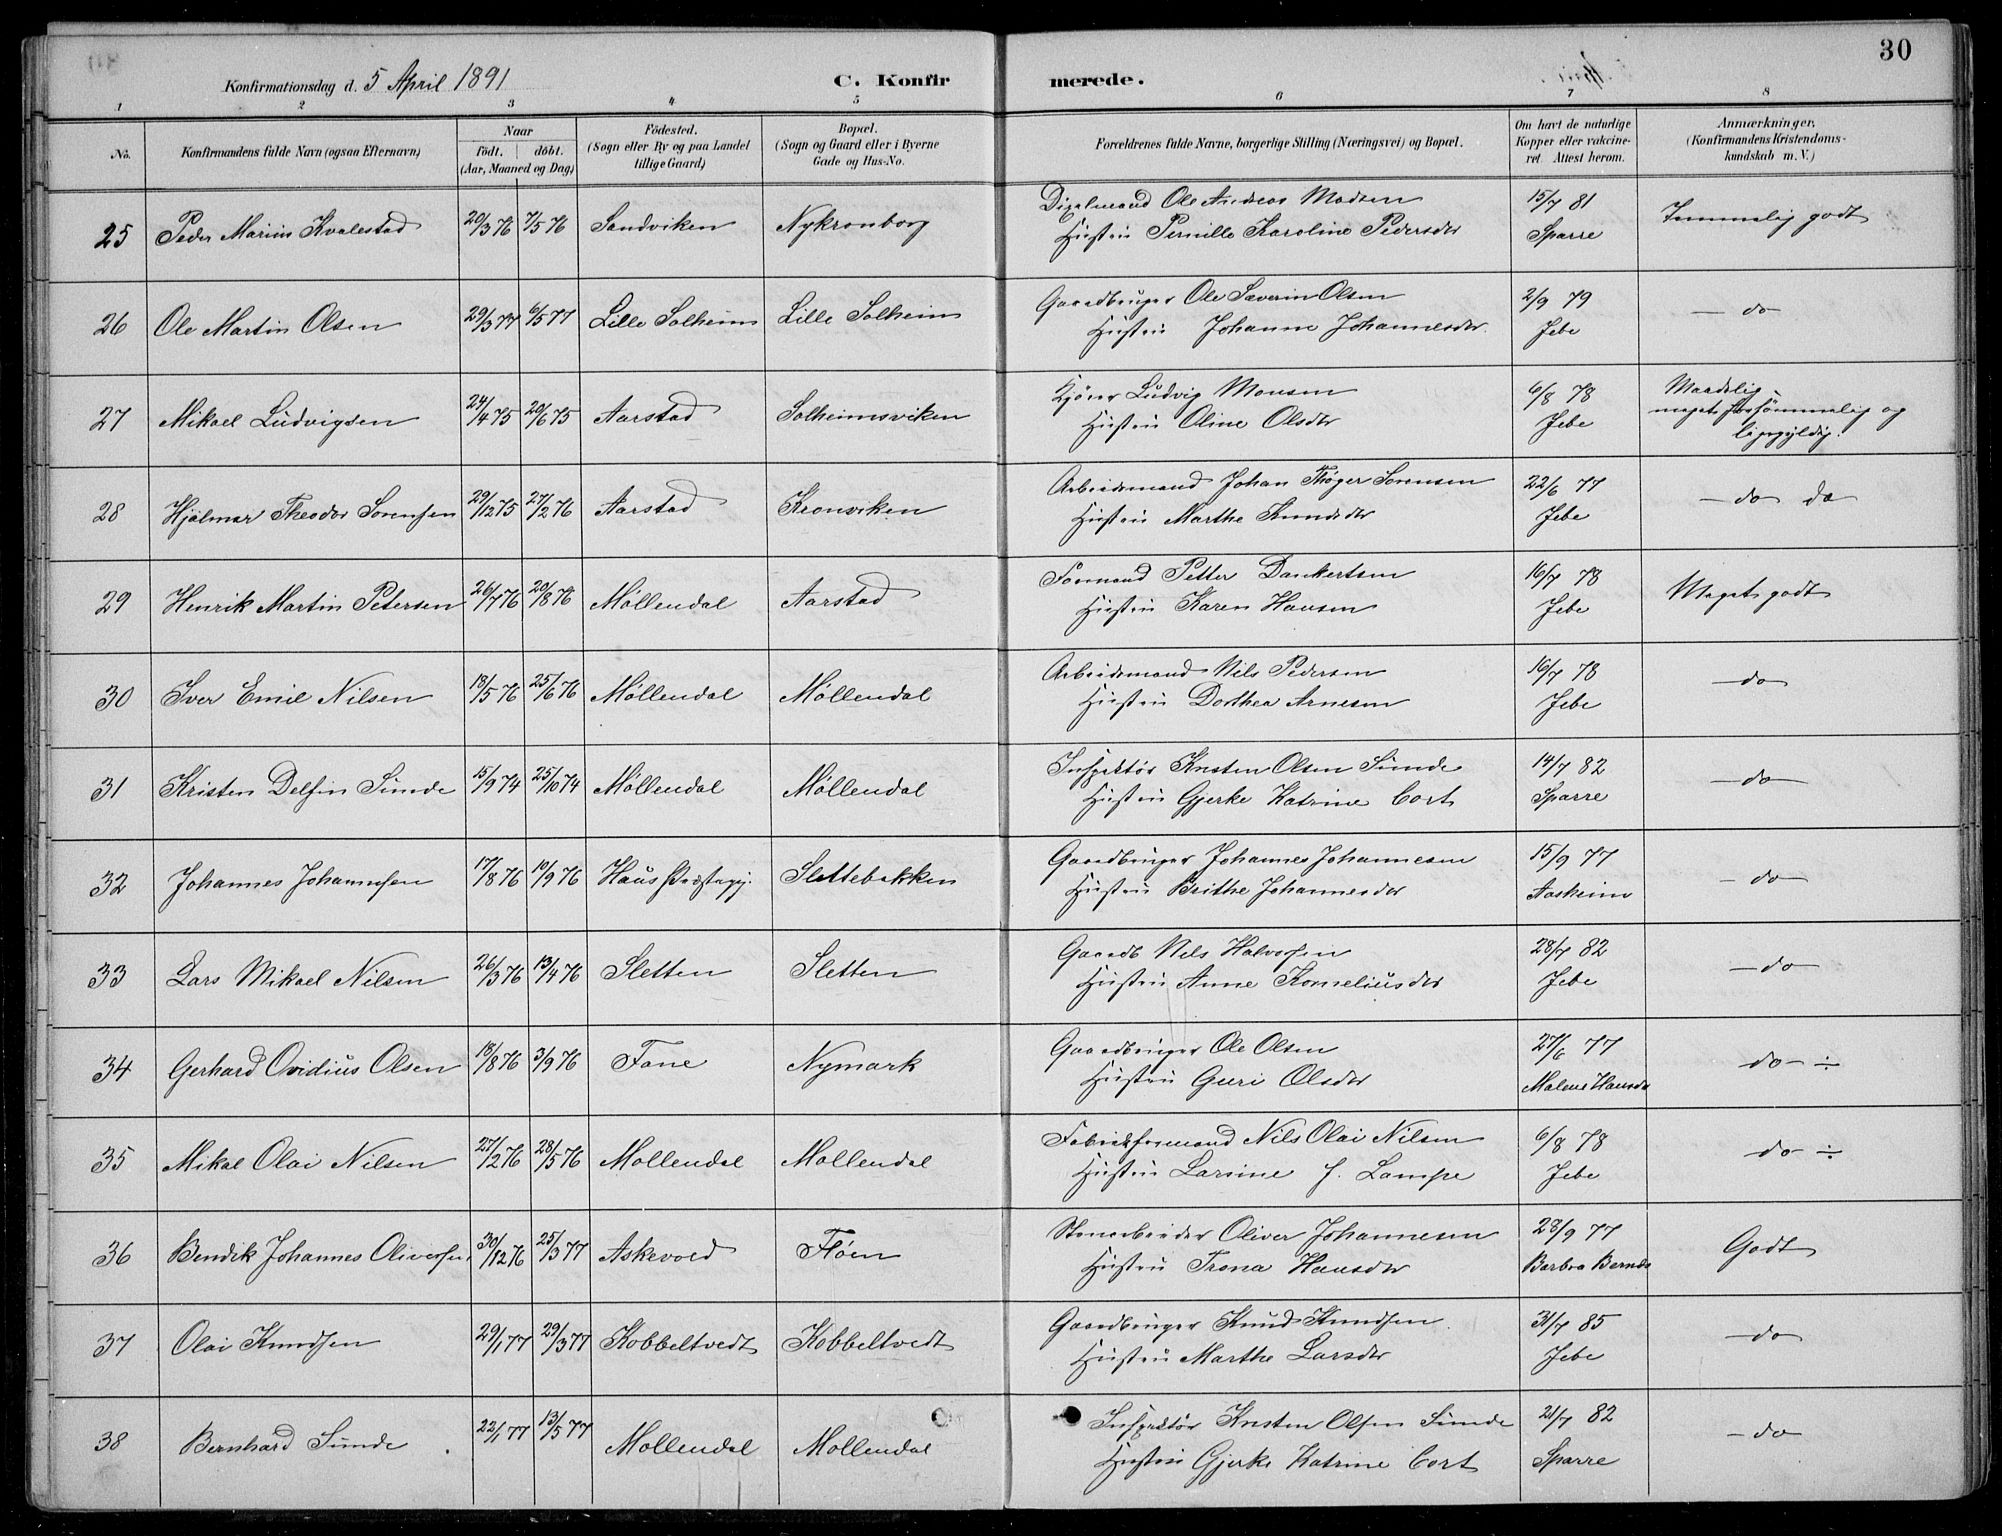 30
Konfirmationsdag d. 5 April 1891
C. Konfirmerede.
1 2 3 4 5 6 7 8
No. Konfirmandens fulde Navn (ogsaa Efternavn) Naar født. døbt. (Aar, Maaned og Dag) Födested. (Sogn eller By og paa Landet tillige Gaard) Bopæl. (Sogn og Gaard eller i Byerne Gade og Hus-No. Forældrenes fulde Navne, borgerlige Stilling (Næringsvei) og Bopæl. Om havt de naturlige Kopper eller vakcineret. Attest herom. Anmærkninger, (Konfirmandens Kristendomskundskab m. V.)
25 Peder Marius Kvalestad 20/3 76 7/5 76 Sandviken Nykronborg Ole Andreas Madsen 15/7 81 Temmelig godt
Hustru Pernille Karoline Pedersdtr Sparre
26 Ole Martin Olsen 29/3 77 6/5 77 Lille Solheim Lille Solheim Gaardbruger Ole Severin Olsen 2/9 79 — do
Hustru Johanne Johannesdtr. Jebe
27 Mikael Ludvigsen 24/4 75 20/6 75 Aarstad Solheimsviken Kjører Ludvig Monsen 6/8 78 Maadelig
Hustru Oline Olsdtr Jebe meget forsømmelig og
ligegyldig.
28 Hjalmar Theodor Sørensen 29/12 75 27/2 76 Aarstad Kronviken Arbeidsmand Johan Thøger Sørensen 22/6 77 — do do
Hustru Marthe Knudsdtr Jebe
29 Henrik Martin Petersen 26/7 76 20/8 76 Møllendal Aarstad Formand Petter Dankertsen 16/7 78 Meget godt
Hustru Karen Hansen Jebe
30 Iver Emil Nilsen 18/5 76 25/6 76 Møllendal Møllendal Arbeidsmand Nils Pedersen 16/7 78 — do —
Hustru Dorthea Arnesen Jebe
31 Kristen Delfin Sunde 15/9 74 25/10 74 Møllendal Møllendal Inspektør Kristen Olsen Sunde 14/7 82 — do —
Hustru Gjerke Katrine Cort Sparre
32 Johannes Johannesen 17/8 76 10/9 76 Haus Præstegj. Slettebakken Gaardbruger Johannes Johannesen 15/9 77 — do —
Hustru Brithe Johannesdtr Aaskeim
33 Lars Mikael Nilsen 26/3 76 13/4 76 Sletten Sletten Gaardb Nils Halvorsen 28/7 82 — do —
Hustru Anne Korneliusdtr Jebe
34 Gerhard Ovidius Olsen 18/8 76 3/9 76 Fane Nymark Gaardbruger Ole Olsen 27/6 77 do ÷
Hustru Guri Olsdtr Malene Hansdtr
35 Mikal Olai Nilsen 27/2 76 28/5 76 Møllendal Møllendal Fabrikformand Nils Olai Nilsen 6/8 78 do ÷
Hustru Larsine f. Lampe Jebe
36 Bendik Johannes Oliversen 30/12 76 25/3 77 Askevold Fløen Stenarbeider Oliver Johannesen 23/9 77 Godt
Hustru Trona Hansdtr Barbra Bernds
37 Olai Knudsen 29/1 77 29/3 77 Kobbeltvedt Kobbeltvedt Gaardbruger Knud Knudsen 31/7 85 — do —
Hustru Marthe Larsdtr Jebe
38 Bernhard Sunde 22/1 77 13/5 77 Møllendal Møllendal Inspektør Kristen Olsen Sunde 21/7 82 — do —
Hustru Gjerke Katrine Cort Sparre